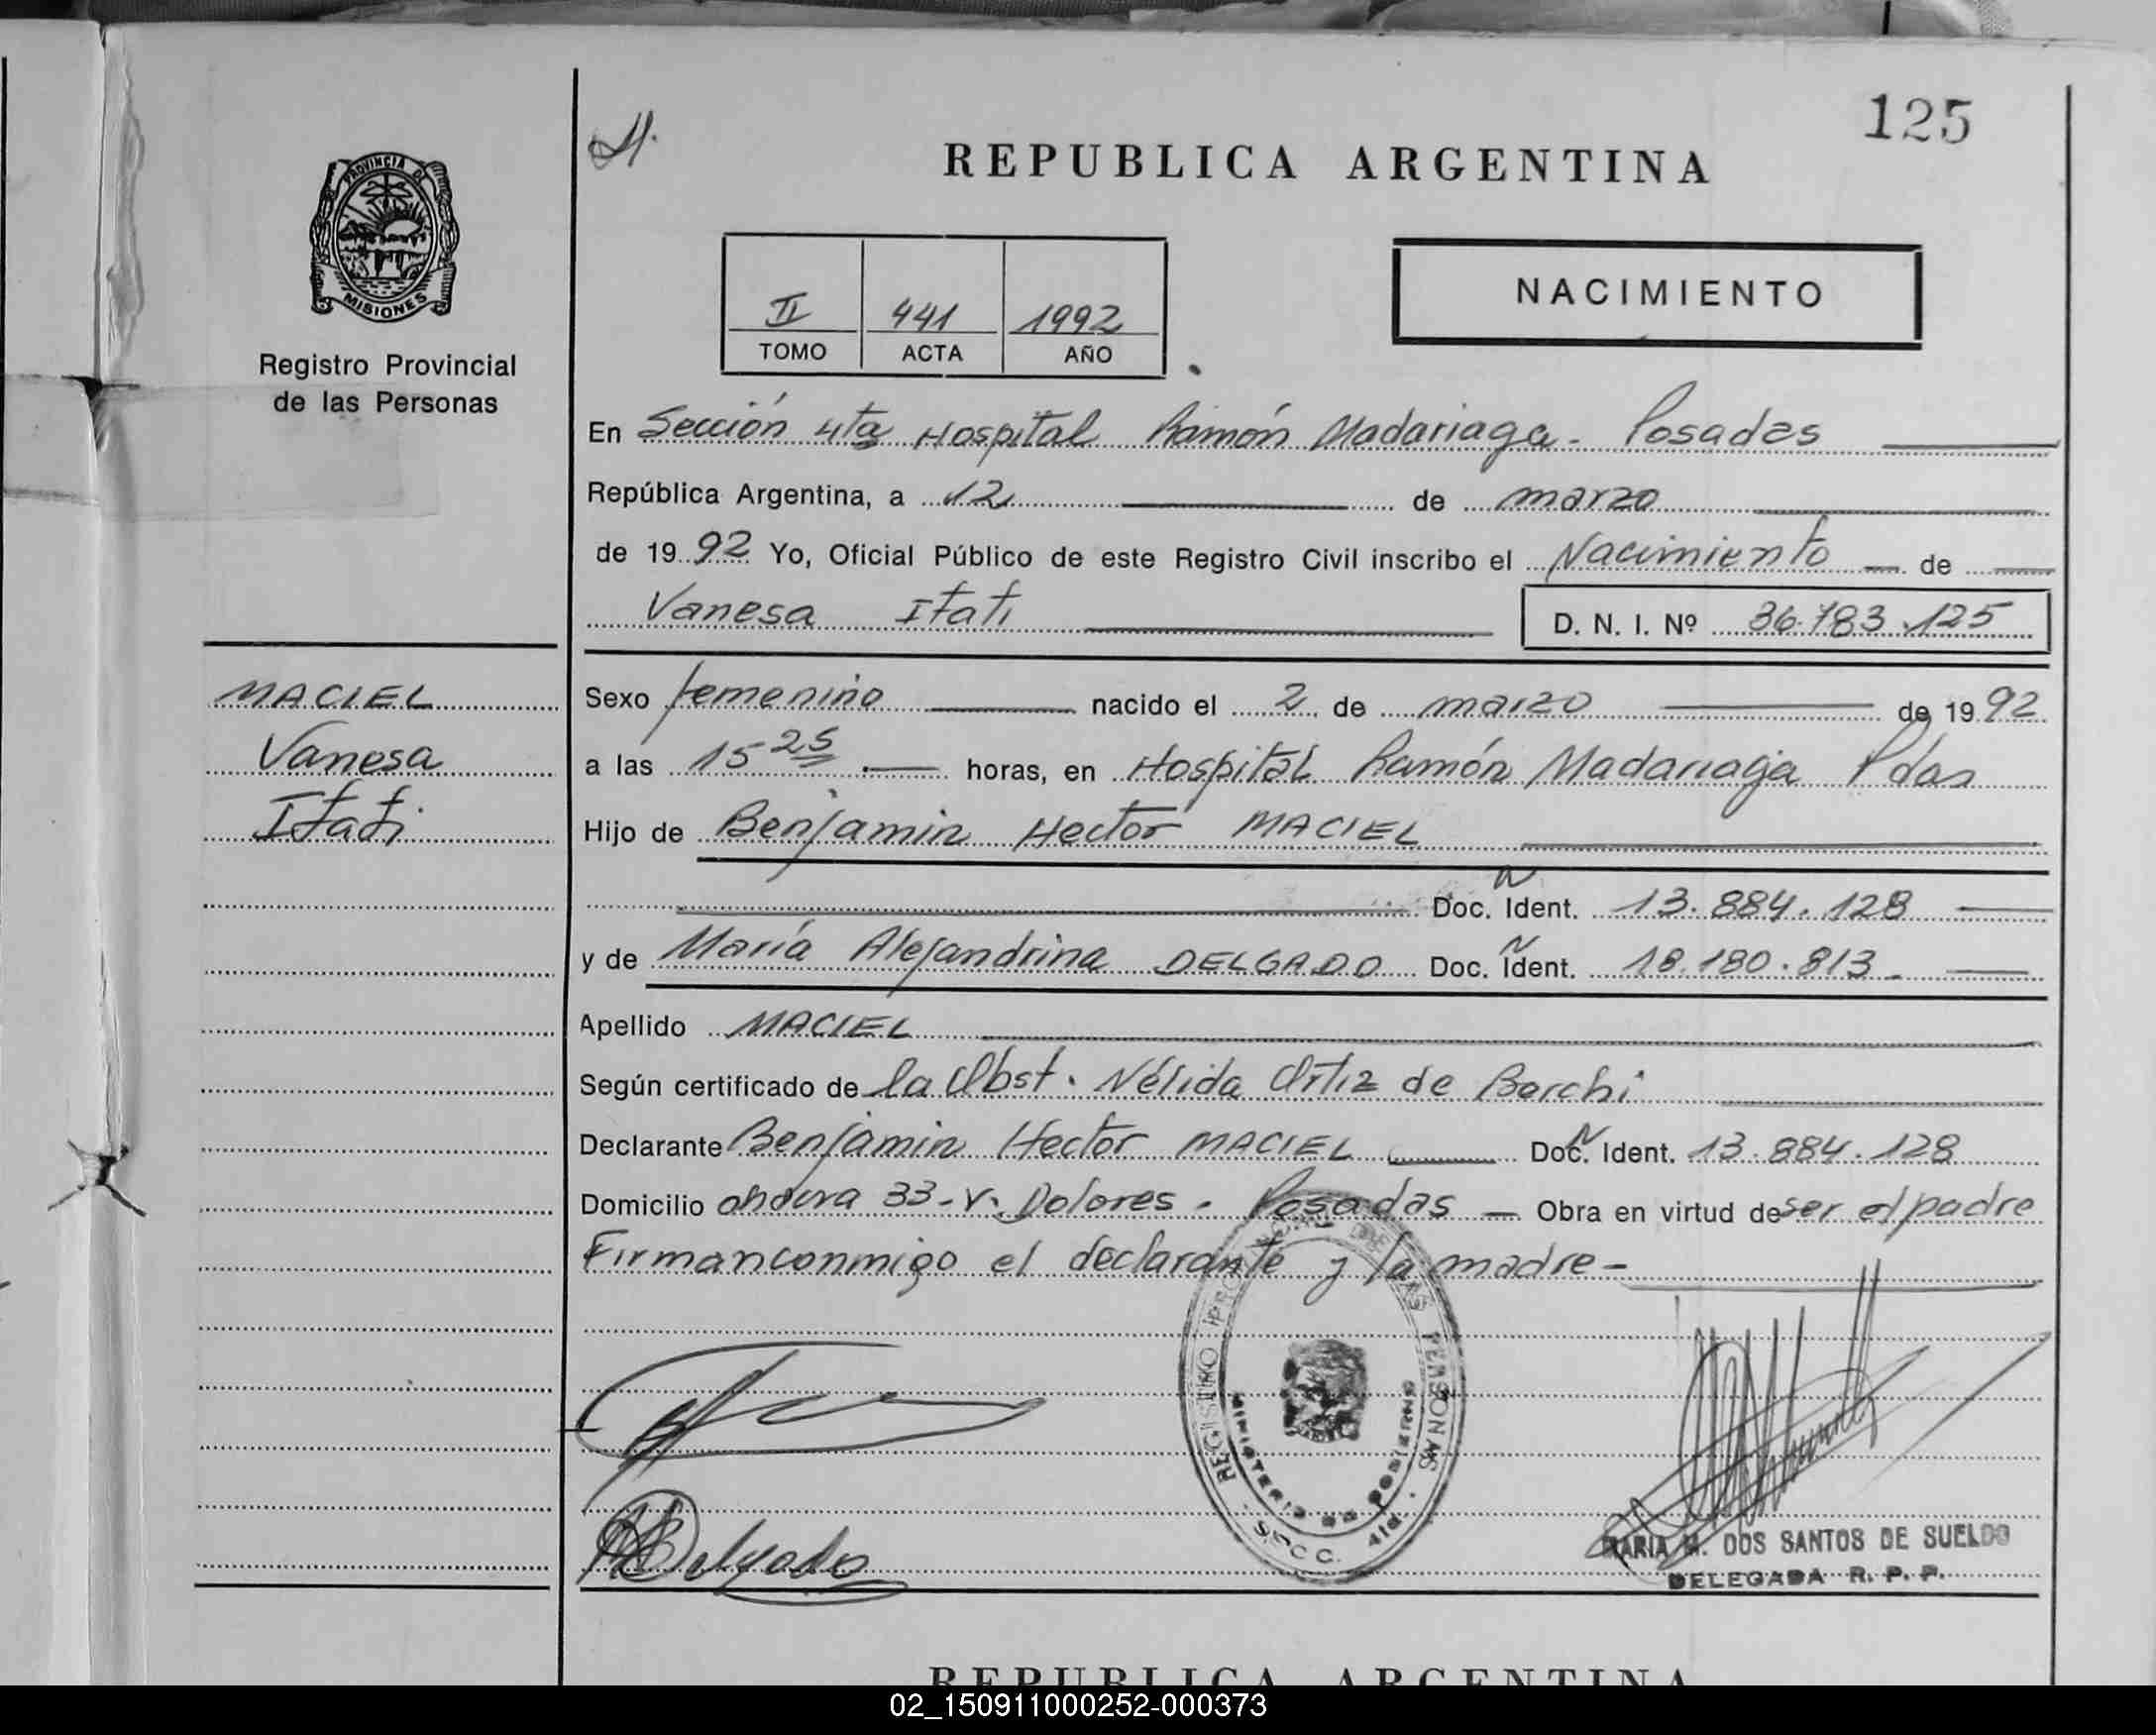 125
REPUBLICA ARGENTINA
PROVINCIA DE
MISIONES
Registro Provincial
de las Personas
II 441 1992
TOMO ACTA AÑO
NACIMIENTO
En Sección 4ta Hospital Ramón Madariaga - Posadas
República Argentina, a 12 de marzo
de 1992 Yo, Oficial Público de este Registro Civil inscribo el Nacimiento de
Vanesa Itati D. N. I. Nº 36.783.125
MACIEL
Vanesa
Itati
Sexo femenino nacido el 2 de marzo de 1992
a las 15 25 horas, en Hospital Ramón Madariaga Pdas
Hijo de Benjamin Hector MACIEL
Doc. Ident. 13.884.128
y de María Alejandrina DELGADO Doc. Ident. 18.180.813
Apellido MACIEL
Según certificado de la Obst. Nélida Ortiz de Barchi
Declarante Benjamin Hector MACIEL Doc. Ident. 13.884.128
Domicilio 33 - V. Dolores - Posadas Obra en virtud de ser el padre
Firman conmigo el declarante y la madre -
REGISTRO PROV. DE LAS PERSONAS
MINISTERIO DE GOBIERNO
SECC. 4ta.
Delgado
MARIA M. DOS SANTOS DE SUELDO
DELEGADA R. P. P.
REPUBLICA ARGENTINA
02_150911000252-000373